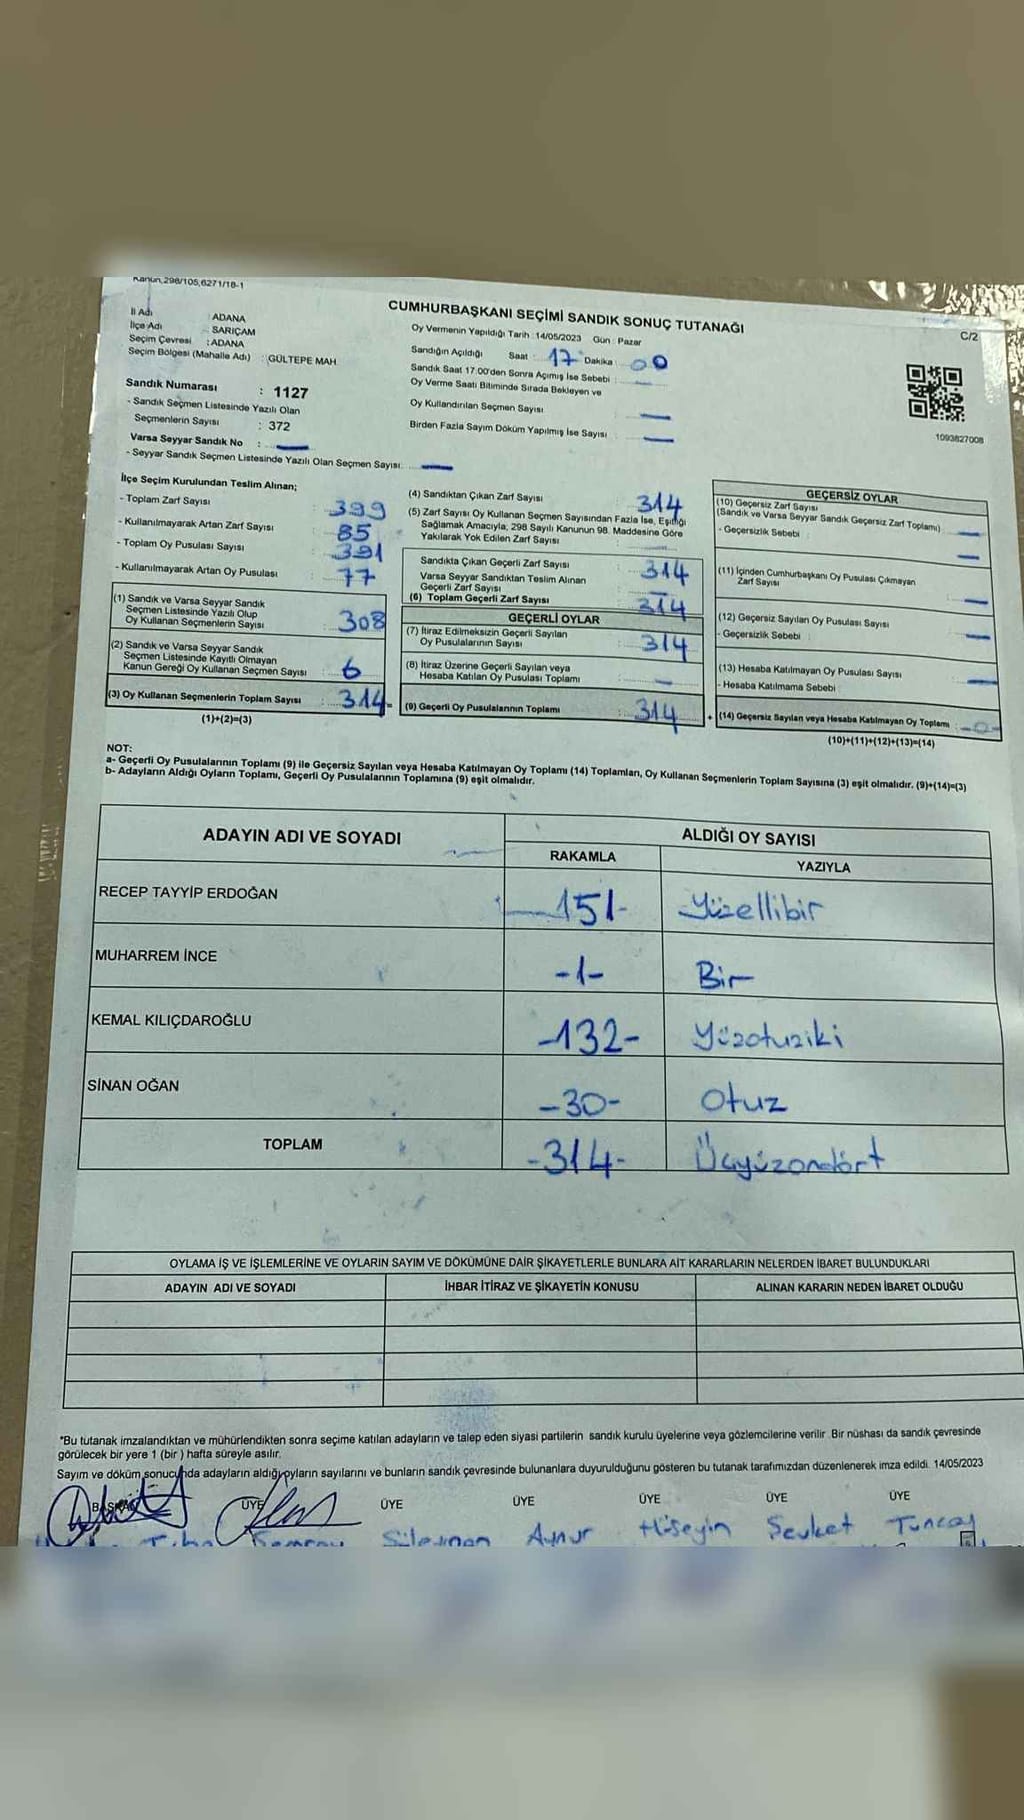 Kanun,298/105,6271/18-1
CUMHURBAŞKANI SEÇİMİ SANDIK SONUÇ TUTANAĞI
C/2
İl Adı : ADANA
İlçe Adı : SARIÇAM
Seçim Çevresi : ADANA
Seçim Bölgesi (Mahalle Adı) : GÜLTEPE MAH.
Sandık Numarası : 1127
- Sandık Seçmen Listesinde Yazılı Olan
Seçmenlerin Sayısı : 372
Varsa Seyyar Sandık No :
- Seyyar Sandık Seçmen Listesinde Yazılı Olan Seçmen Sayısı:
Oy Vermenin Yapıldığı Tarih : 14/05/2023 Gün : Pazar
Sandığın Açıldığı Saat : 17 Dakika : 00
Sandık Saat 17:00'den Sonra Açımış İse Sebebi :
Oy Verme Saati Bitiminde Sırada Bekleyen ve
Oy Kullandırılan Seçmen Sayısı
Birden Fazla Sayım Döküm Yapılmış İse Sayısı :
1093827008
İlçe Seçim Kurulundan Teslim Alınan;
- Toplam Zarf Sayısı : 399
- Kullanılmayarak Artan Zarf Sayısı : 85
- Toplam Oy Pusulası Sayısı : 391
- Kullanılmayarak Artan Oy Pusulası : 77
(1) Sandık ve Varsa Seyyar Sandık
Seçmen Listesinde Yazılı Olup
Oy Kullanan Seçmenlerin Sayısı : 308
(2) Sandık ve Varsa Seyyar Sandık
Seçmen Listesinde Kayıtlı Olmayan
Kanun Gereği Oy Kullanan Seçmen Sayısı : 6
(3) Oy Kullanan Seçmenlerin Toplam Sayısı : 314-
(1)+(2)=(3)
(4) Sandıktan Çıkan Zarf Sayısı : 314
(5) Zarf Sayısı Oy Kullanan Seçmen Sayısından Fazla İse, Eşitliği
Sağlamak Amacıyla, 298 Sayılı Kanunun 98. Maddesine Göre
Yakılarak Yok Edilen Zarf Sayısı :
Sandıkta Çıkan Geçerli Zarf Sayısı : 314
Varsa Seyyar Sandıktan Teslim Alınan
Geçerli Zarf Sayısı :
(6) Toplam Geçerli Zarf Sayısı : 314
GEÇERLİ OYLAR
(7) İtiraz Edilmeksizin Geçerli Sayılan
Oy Pusulalarının Sayısı : 314
(8) İtiraz Üzerine Geçerli Sayılan veya
Hesaba Katılan Oy Pusulası Toplamı :
(9) Geçerli Oy Pusulalarının Toplamı : 314
GEÇERSİZ OYLAR
(10) Geçersiz Zarf Sayısı
(Sandık ve Varsa Seyyar Sandık Geçersiz Zarf Toplamı) :
- Geçersizlik Sebebi :
(11) İçinden Cumhurbaşkanı Oy Pusulası Çıkmayan
Zarf Sayısı :
(12) Geçersiz Sayılan Oy Pusulası Sayısı
- Geçersizlik Sebebi :
(13) Hesaba Katılmayan Oy Pusulası Sayısı
- Hesaba Katılmama Sebebi :
+ (14) Geçersiz Sayılan veya Hesaba Katılmayan Oy Toplamı : -0-
(10)+(11)+(12)+(13)=(14)
NOT:
a- Geçerli Oy Pusulalarının Toplamı (9) ile Geçersiz Sayılan veya Hesaba Katılmayan Oy Toplamı (14) Toplamları, Oy Kullanan Seçmenlerin Toplam Sayısına (3) eşit olmalıdır. (9)+(14)=(3)
b- Adayların Aldığı Oyların Toplamı, Geçerli Oy Pusulalarının Toplamına (9) eşit olmalıdır.
ADAYIN ADI VE SOYADI ALDIĞI OY SAYISI
RAKAMLA YAZIYLA
RECEP TAYYİP ERDOĞAN 151- Yüzellibir
MUHARREM İNCE -1- Bir
KEMAL KILIÇDAROĞLU -132- Yüzotuziki
SİNAN OĞAN -30- Otuz
TOPLAM -314- Üçyüzondört
OYLAMA İŞ VE İŞLEMLERİNE VE OYLARIN SAYIM VE DÖKÜMÜNE DAİR ŞİKAYETLERLE BUNLARA AİT KARARLARIN NELERDEN İBARET BULUNDUKLARI
ADAYIN ADI VE SOYADI İHBAR İTİRAZ VE ŞİKAYETİN KONUSU ALINAN KARARIN NEDEN İBARET OLDUĞU
*Bu tutanak imzalandıktan ve mühürlendikten sonra seçime katılan adayların ve talep eden siyasi partilerin sandık kurulu üyelerine veya gözlemcilerine verilir. Bir nüshası da sandık çevresinde
görülecek bir yere 1 (bir ) hafta süreyle asılır.
Sayım ve döküm sonucunda adayların aldığı oyların sayılarını ve bunların sandık çevresinde bulunanlara duyurulduğunu gösteren bu tutanak tarafımızdan düzenlenerek imza edildi. 14/05/2023
BAŞKAN ÜYE ÜYE ÜYE ÜYE ÜYE ÜYE
Süleyman Aynur Hüseyin Şevket Tuncay